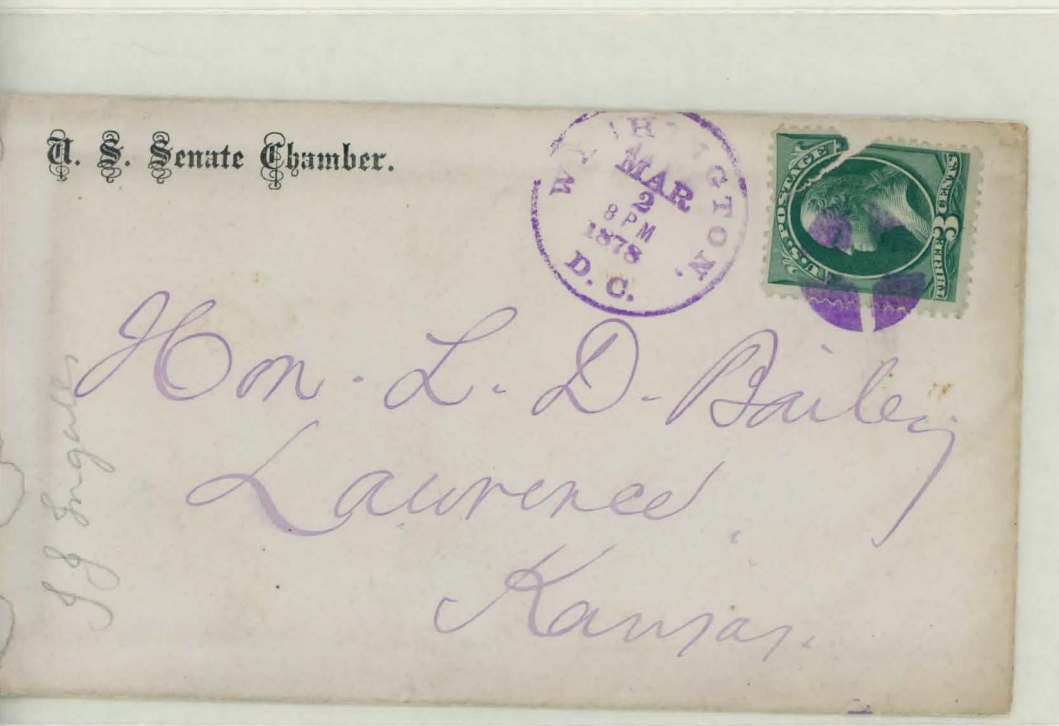 U. S. Senate Chamber.
WASHINGTON.
MAR
2
8 PM
1878
D. C.
U.S. POSTAGE
3
Hon. L. D. Bailey
Lawrence.
Kansas.
J J Ingalls